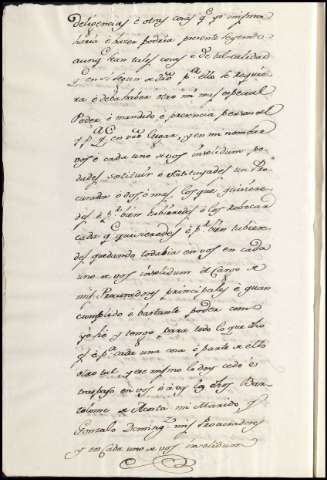 Deligencias é otras cosas q.e yo misma
haria é hacer podria presente seyendo
aunq.e sean tales cosas é de tal calidad
q.e en si segun dro p.a ello se requie
ra é deba haber otro mi mas especial
Poder, é mandado é presencia personal
é p.a q.e en mi lugar, y en mi nombre
vos é cada uno de vos insolidum po
dades sostituir é sostituyades un Pro
curador é dos, é mas, los que quisiere
des é p.r bien tubieredes é los revocar
cada q.e quisieredes é p.r bien tubiere
des quedando todabia en vos en cada
uno de vos insolidum el cargo de
mis Procuradores principales é quan
cumplido é bastante poder como
yo hé y tengo para todo lo que dho
es é p.a cada una cosa é parte de ello
otro tal y ese mismo lo doy cedo é
traspaso en vos é á vos los dhos Bar
tolome de Acosta mi Marido, y
Gonzalo Doming.z mis Procuradores
y en cada uno de vos insolidum